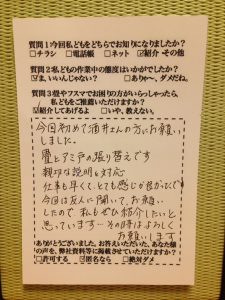 質問1今回私どもをどちらでお知りになりましたか?
□チラシ □電話帳 □ネット ☑紹介 その他
質問2私どもの作業中の態度はいかがでしたか?
☑ま、いいんじゃない? □ありゃ〜、ダメだね。
質問3畳やフスマでお困りの方がいらっしゃったら、
私どもをご推薦いただけますか?
☑紹介してあげるよ □いや、教えない。
今回初めて酒井さんの方にお願い
しました。
畳とアミ戸の張り替えです
親切な説明と対応
仕事も早くて、とても感じが良かったです
今回は友人に聞いて、お願い
したので 私もぜひ紹介したいと
思っています…その時はよろしく
お願いします
ありがとうございました。お答えいただいた、あなた様
の声を、弊社資料等に掲載させていただけますか?
□許可する ☑匿名なら □絶対ダメ